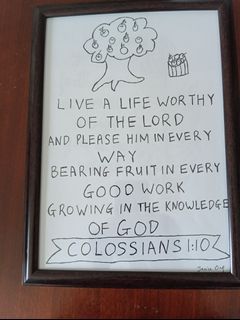 LIVE A LIFE WORTHY
OF THE LORD
AND PLEASE HIM IN EVERY
WAY
BEARING FRUIT IN EVERY
GOOD WORK
GROWING IN THE KNOWLEDGE
OF GOD
COLOSSIANS 1:10